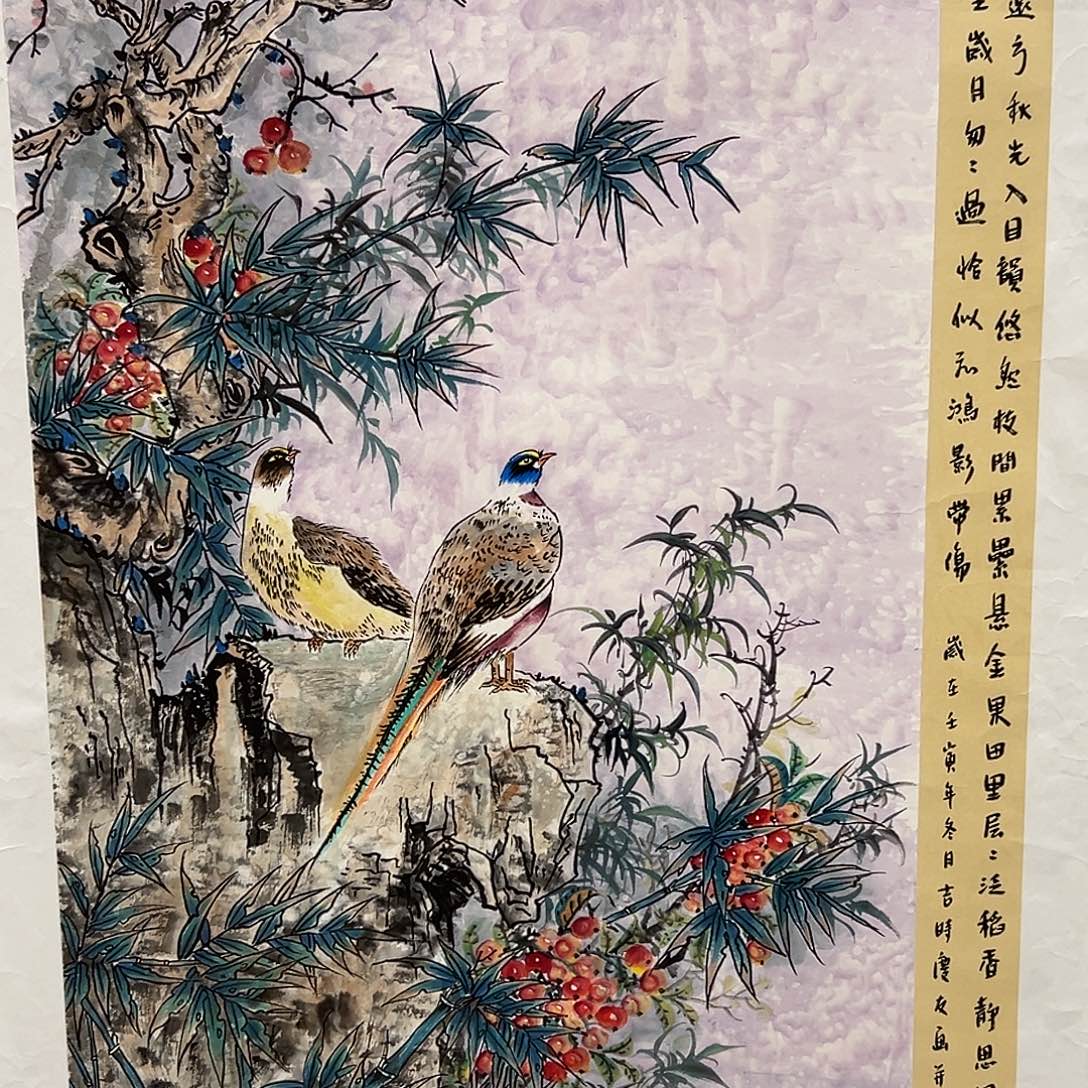 兮秋光入目韻悠然枝間累纍悬金果田里层〻泛稻香靜思
歲月匆〻過恰似飛鴻影帶傷 歲在壬寅年冬日吉時慶友画并